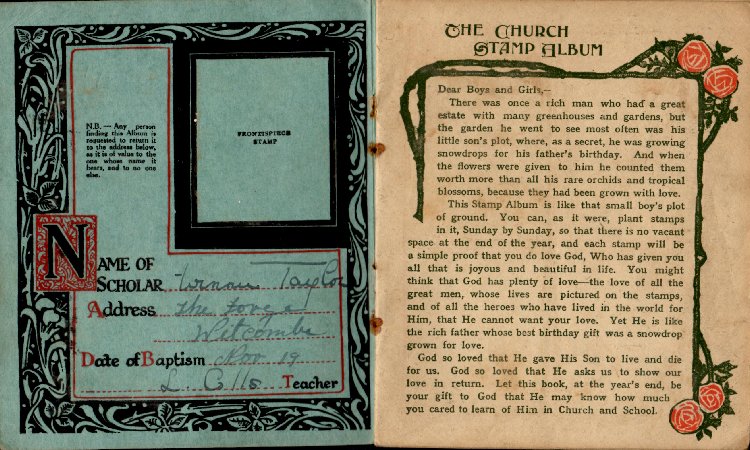 N.B. — Any person
finding this Album is
requested to return it
to the address below,
as it is of value to the
one whose name it
bears, and to no one
else.
FRONTISPIECE
STAMP
NAME OF
SCHOLAR Taylor
Address The Forge
Witcombe
Date of Baptism Nov 19
Teacher
THE CHURCH
STAMP ALBUM
Dear Boys and Girls,—
There was once a rich man who had a great
estate with many greenhouses and gardens, but
the garden he went to see most often was his
little son's plot, where, as a secret, he was growing
snowdrops for his father's birthday. And when
the flowers were given to him he counted them
worth more than all his rare orchids and tropical
blossoms, because they had been grown with love.
This Stamp Album is like that small boy's plot
of ground. You can, as it were, plant stamps
in it, Sunday by Sunday, so that there is no vacant
space at the end of the year, and each stamp will be
a simple proof that you do love God, Who has given you
all that is joyous and beautiful in life. You might
think that God has plenty of love—the love of all the
great men, whose lives are pictured on the stamps,
and of all the heroes who have lived in the world for
Him, that He cannot want your love. Yet He is like
the rich father whose best birthday gift was a snowdrop
grown for love.
God so loved that He gave His Son to live and die
for us. God so loved that He asks us to show our
love in return. Let this book, at the year's end, be
your gift to God that He may know how much
you cared to learn of Him in Church and School.